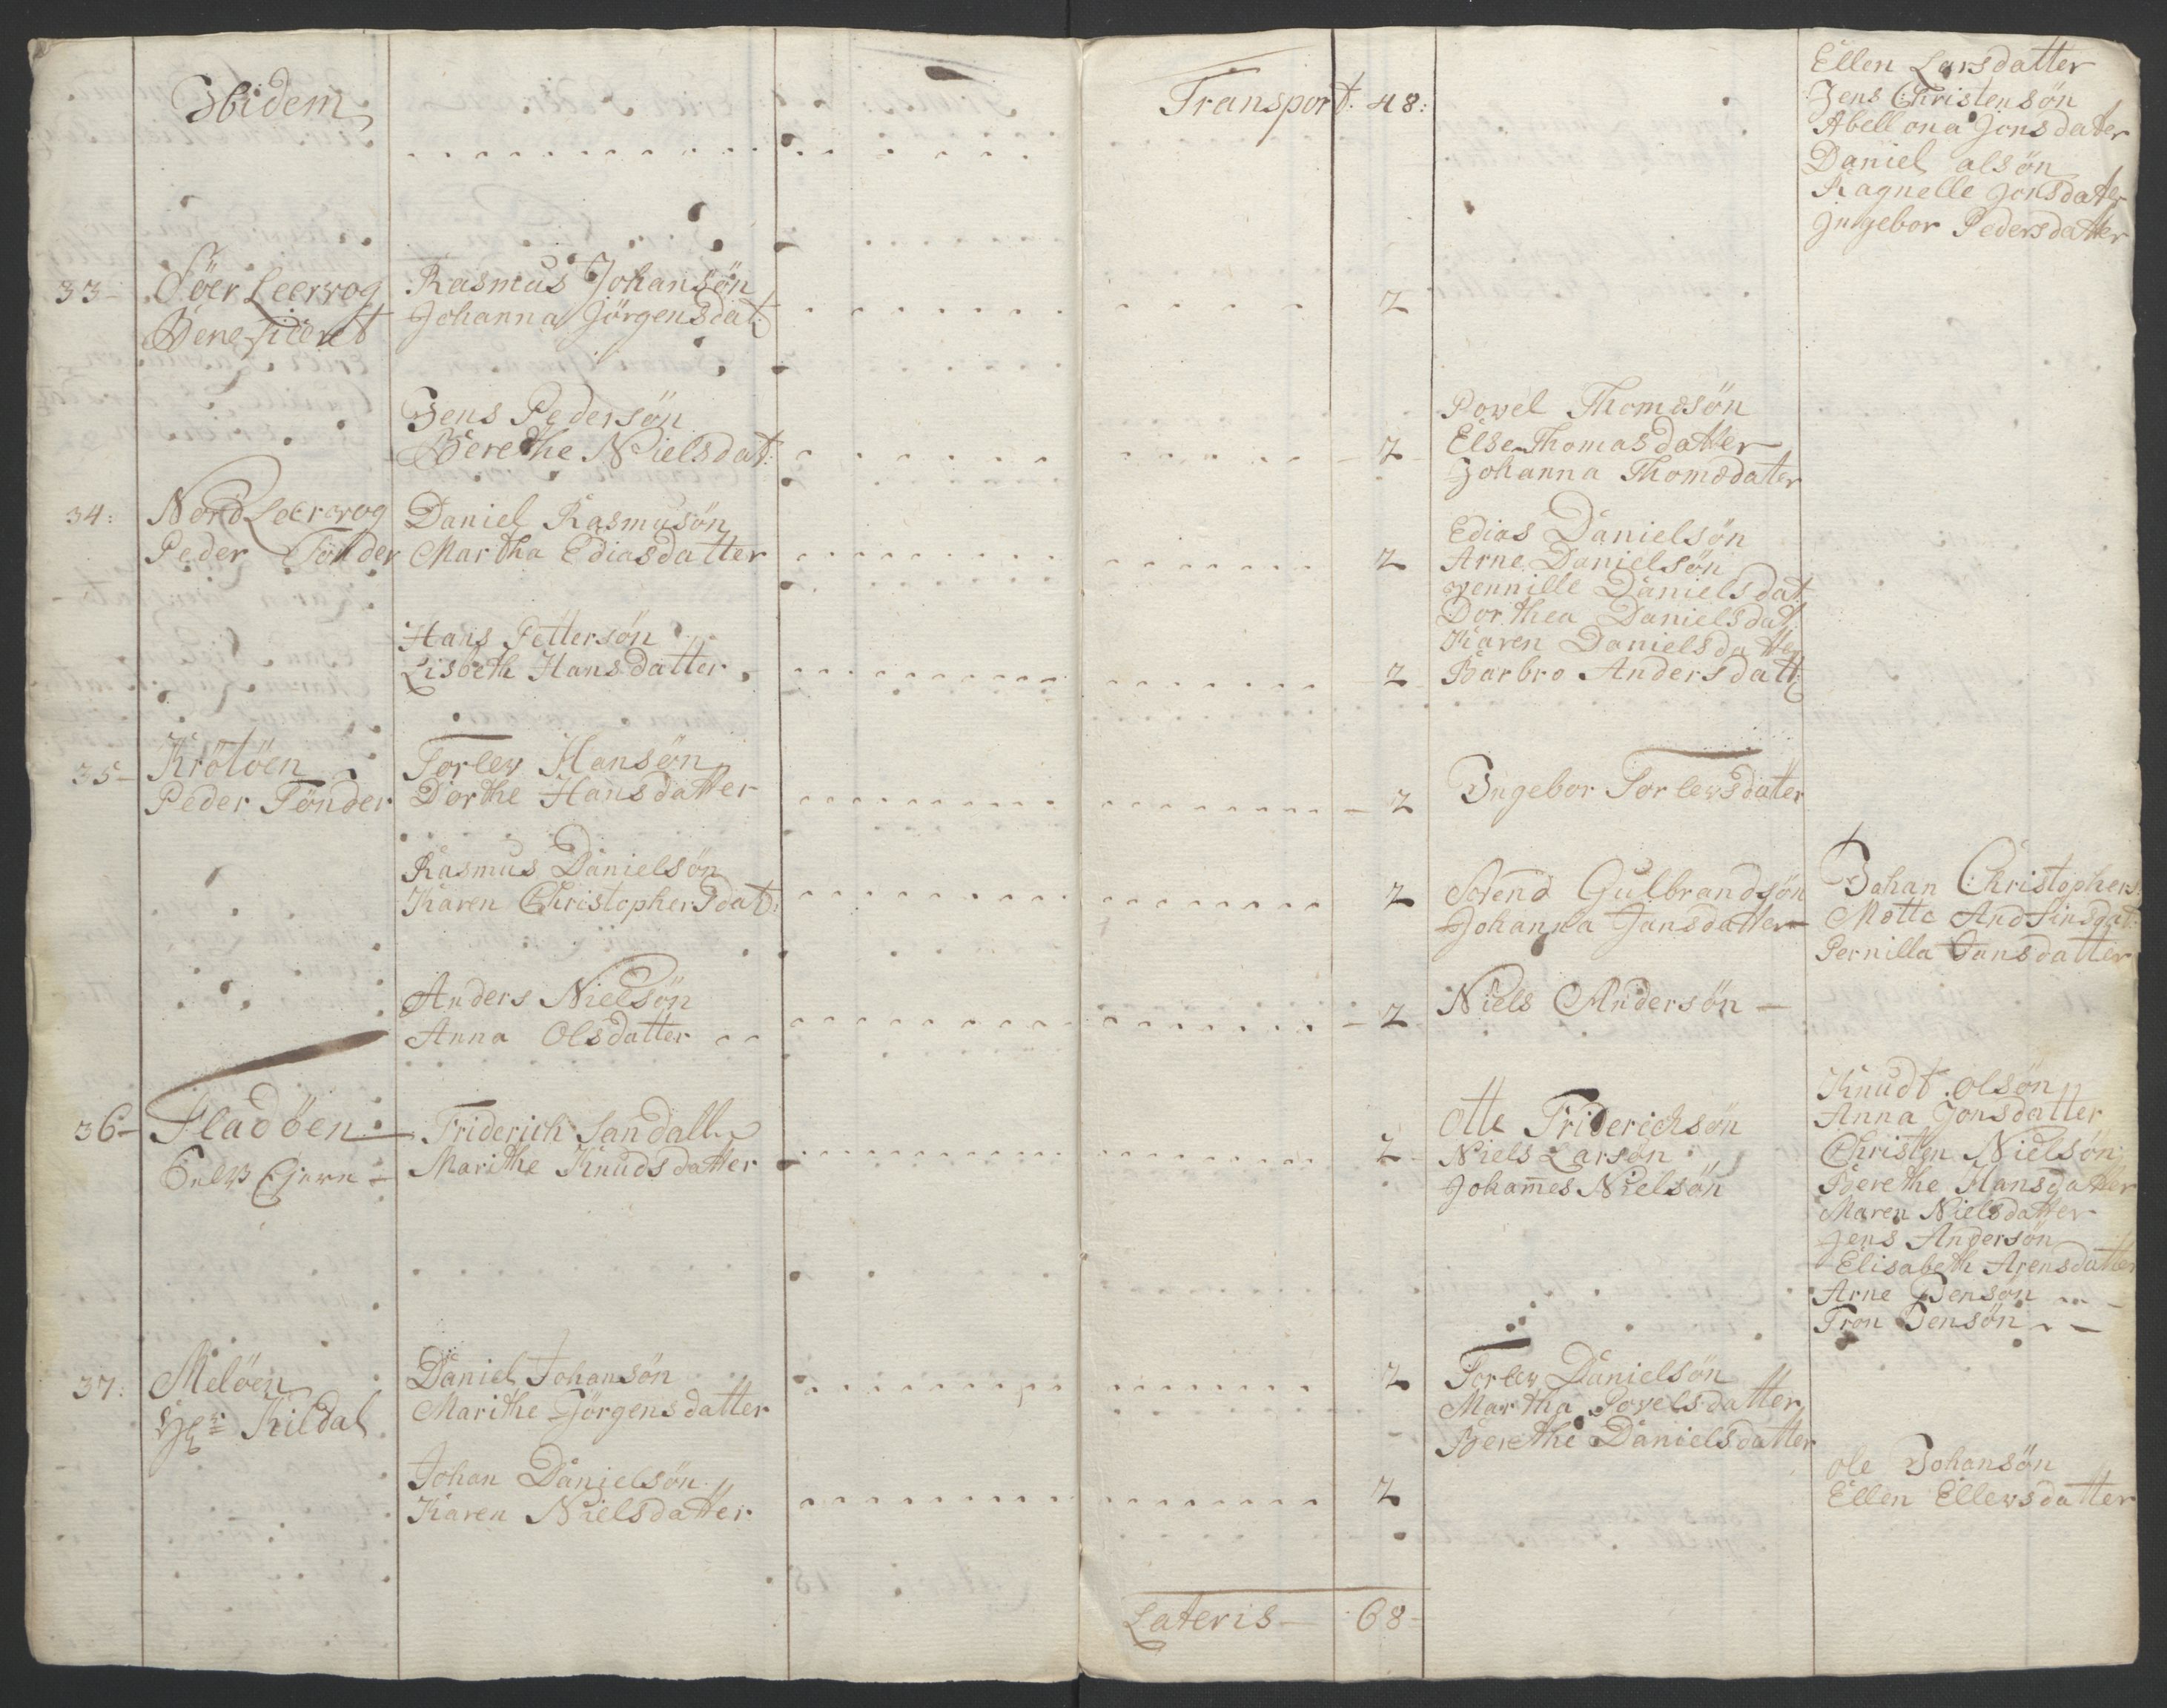 Ibidem
Transport: 48:
Ellen Larsdatter
Jens Christensøn
Abellona Jonsdatter
Daniel alsøn
Ragnelle Jonsdatter
Ingebor Pedersdatter
33- Söer Leervog Rasmus Johansøn
Beneficeret Johanna Jörgensdat: 2
Jens Pedersøn
Berethe Nielsdat: 2
Povel Thomæsøn
Else Thomasdatter
Johanna Thomædater
34: Nord Leervog Daniel Rasmusøn
Peder Tönder Martha Ediasdatter 2
Edias Danielsøn
Arne Danielsøn
Pennille Danielsdat:
Dorthea Danielsdat:
Karen Danielsdatter
Hans Pettersøn
Lisbeth Hansdatter 2 Barbro Andersdatt:
35- Krötöen Torlev Hansøn
Peder Tönder Dorthe Hansdatter 2 Ingebor Torlevsdatter
Rasmus Danielsøn
Karen Christophersdat: 2
Svend Gulbrandsøn
Johanna Jansdatter
Johan Christophers:
Mette Andsinsdat:
Pernilla Jansdatter
Anders Nielsøn
Anna Olsdatter 2 Niels Andersøn
36- Fladöen Friderich Sandall
Marithe Knudsdatter 2
Otte Friderichsøn
Niels Larsøn
Johannes Nielsøn
Knudt olsøn
Anna Jonsdatter
Christen Nielsøn
Berethe Hansdatter
Maren Nielsdatter
Jens Andersøn
Elisabeth Arensdatter
Arne Jensøn
Tron Jensøn
37: Melöen Daniel Johansøn
Hr: Kildal Marithe Jörgensdatter 2
Torlev Danielsøn
Martha Povelsdatter
Berethe Danielsdatter
Johan Danielsøn
Karen Nielsdatter 2
ole Johansøn
Ellen Ellevsdatter
Lateris 68